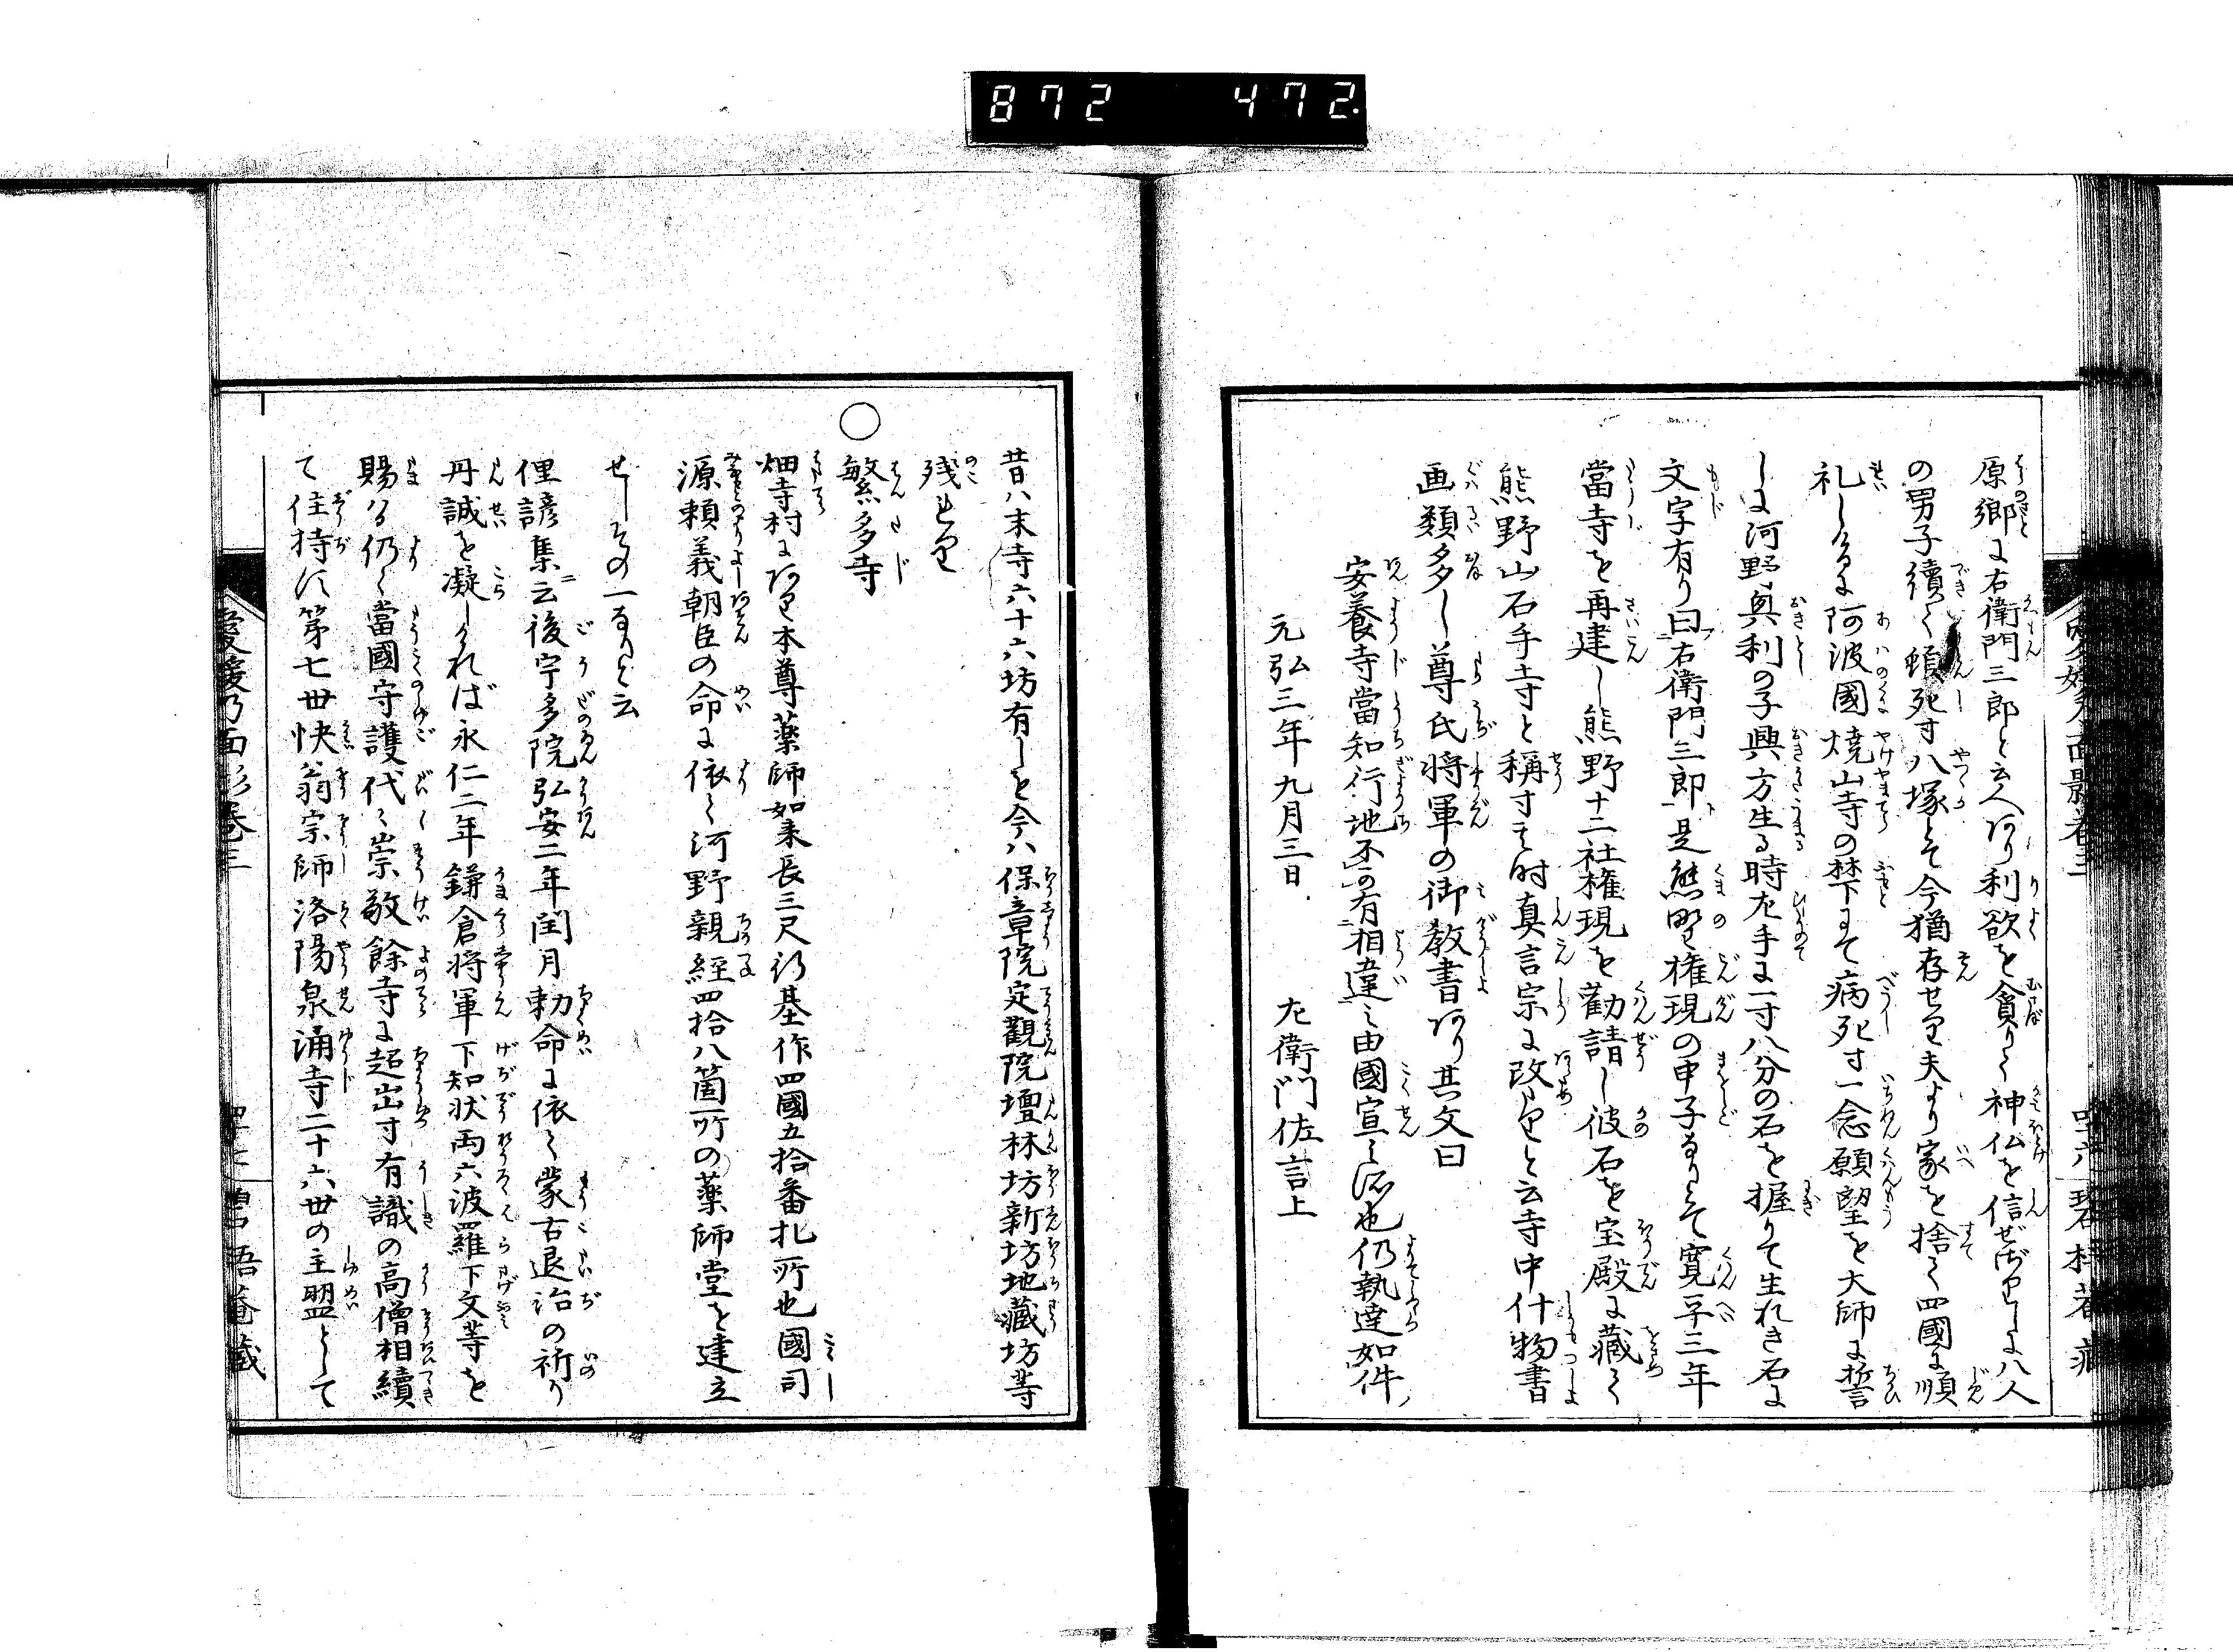 872 472
原郷に右衛門三郎と云人あり利欲を貪りて神仏を信ぜざりしに八人
の男子續て頓死す八塚とて今猶存せり夫より家を捨て四國を順
礼しけるに阿波國焼山寺の梺にて病死す一念願望を大師に誓
しに河野興利の子興方生る時左手に一寸八分の石を握りて生れき石に
文字有り曰右衛門三郎ト是熊野権現の申子なりとて寛平三年
當寺を再建し熊野十二社権現を勧請し彼石を宝殿に藏て
熊野山石手寺と稱す其時真言宗に改めしと云寺中什物書
画類多し尊氏将軍の御教書あり其文曰
安養寺當知行地不可有相違之由國宣之所也仍執達如件
元弘三年九月三日 左衛門佐言上
昔ハ末寺六十六坊有しを今ハ保章院定觀院壇林坊新坊地藏坊等
残れり
○
繁多寺
畑寺村にあり本尊薬師如来長三尺行基作四國五拾番札所也國司
源頼義朝臣の命に依て河野親經四拾八箇所の薬師堂を建立
せしその一なりと云
俚諺集ニ云後宇多院弘安二年閏月勅命に依て蒙古退治の祈り
丹誠を凝しければ永仁二年鎌倉将軍下知状両六波羅下文等を
賜はる仍て當國守護代々崇敬餘寺に超出す有識の高僧相續
て住持す第七世快翁宗師洛陽泉涌寺二十六世の主盟として
愛媛乃面影巻三